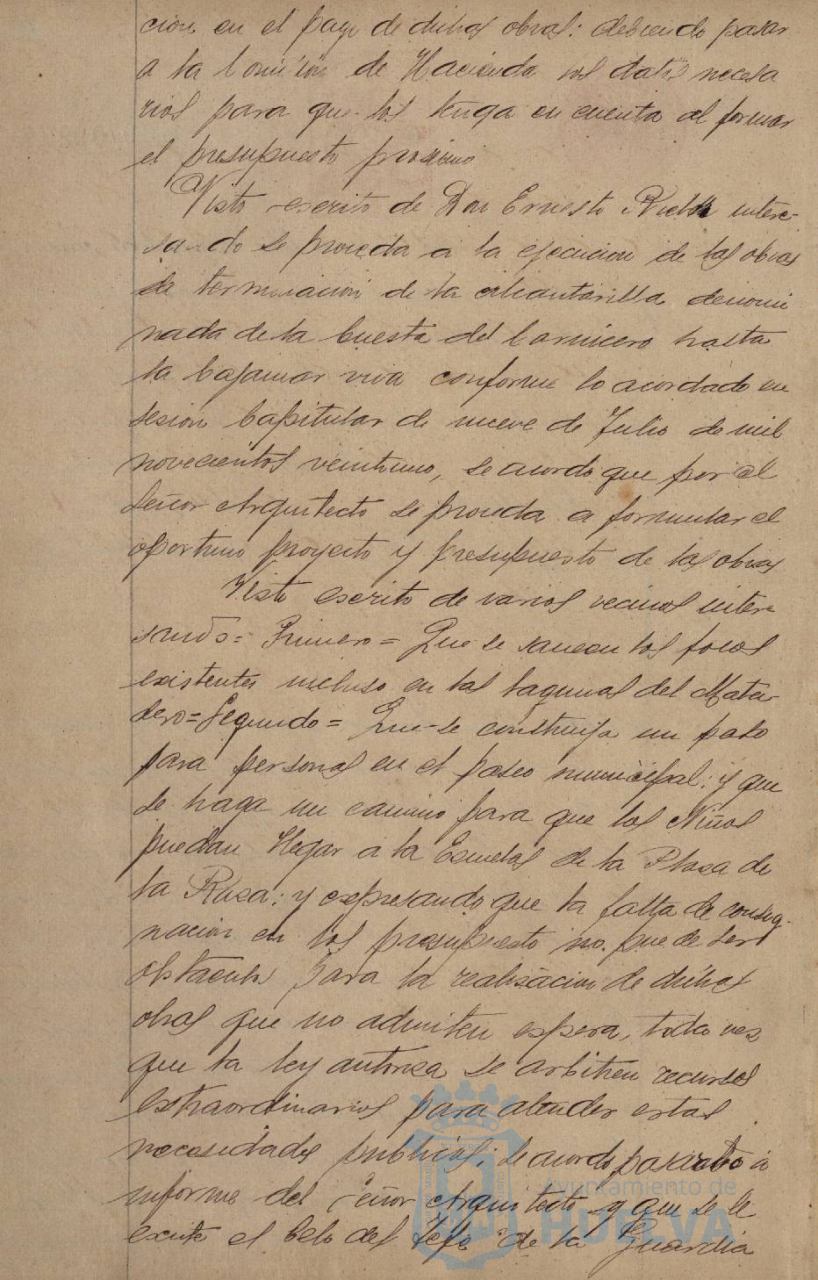 cion en el pago de dichas obras: debiendo pasar
a la Comision de Hacienda los datos necesa
rios para que los tenga en cuenta al formar
el presupuesto proximo
Visto escrito de Don Ernesto intere-
sando se proceda a la ejecucion de las obras
de terminacion de la alcantarilla denomi
nada de la Cuesta del Carnicero hasta
la bajamar viva conforme lo acordado en
sesion Capitular de nueve de Julio de mil
novecientos veintiuno, se acordo que por el
Señor Arquitecto se proceda a formular el
oportuno proyecto y presupuesto de las obras
Visto escrito de varios vecinos intere
sando= Primero= Que se saneen los focos
existentes incluso en las lagunas del Mata-
dero= Segundo= Que se construya un paso
para personas en el paseo municipal: y que
se haga un camino para que los Niños
puedan llegar a la Escuelas de la Plaza de
la Rasa: y expresando que la falta de consig-
nacion en los presupuesto no puede ser
obstaculo para la realizacion de dichas
obras que no admiten espera, toda vez
que la ley autoriza se arbitren recursos
extraordinarios para atender estas
necesidades publicas; se acordo pasarlo a
informe del Señor Arquitecto y que se le
excite el celo del Jefe de la Guardia
Ayuntamiento de
HUELVA